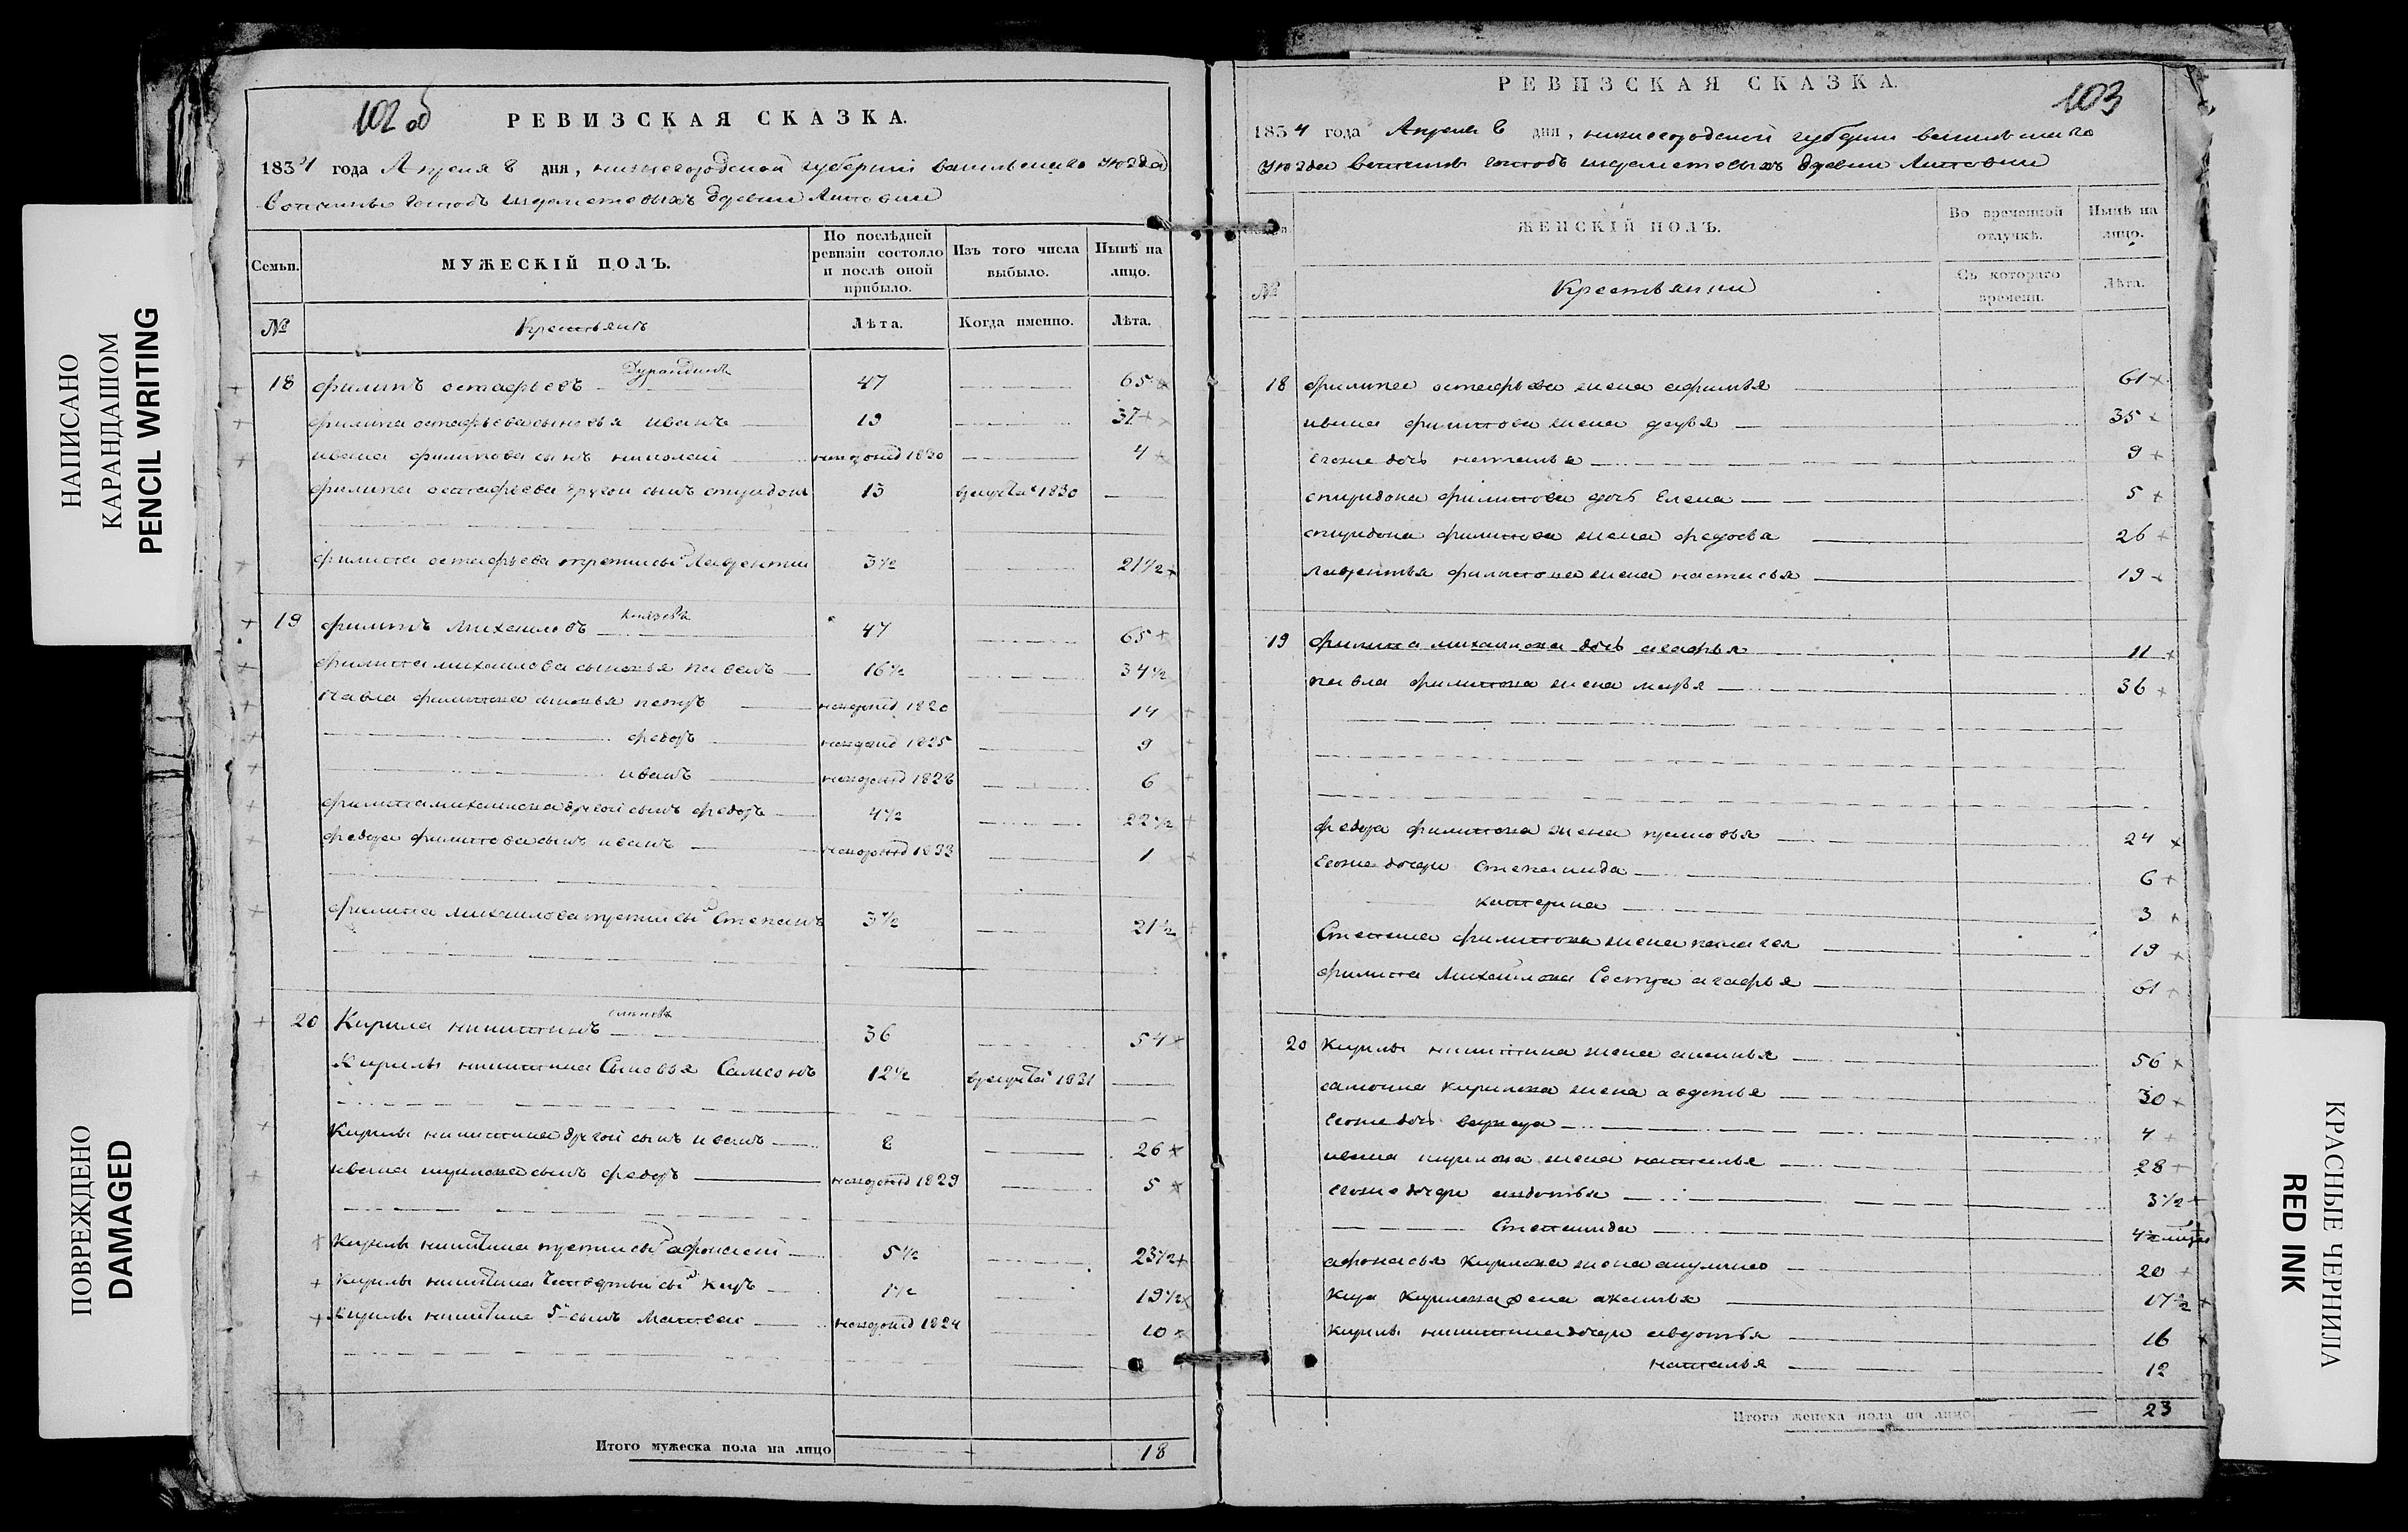 НАПИСАНО
КАРАНДАШОМ
PENCIL WRITING
ПОВРЕЖДЕНО
DAMAGED
102 об
РЕВИЗСКАЯ СКАЗКА.
1834 года Апреля 8 дня, нижегородской губернiи васильскаго уезда
Вотчины господъ шереметевыхъ деревни
Семьи.
МУЖЕСКІЙ ПОЛЪ.
По послѣдней ревизіи состояло и послѣ оной прибыло.
Изъ того числа выбыло.
Нынѣ на лицо.
№
Крестьянъ
Лѣта.
Когда именно.
Лѣта.
18 филипъ остафьевъ Дурандинъ 47 65
филипа остафьева сыновья иванъ 19 37
ивана филипова сынъ николай новорожд 1830 4
филипа остафьева другой сынъ спиридонъ 13 1830
филипа остафьева третий сы Лаврентий 3 1/2 21 1/2
19 филипъ михаиловъ князевъ 47 65
филипа михаилова сыновья павелъ 16 1/2 34 1/2
павла филипова сыновья петръ новорожд 1820 14
федоръ новорожд 1825 9
иванъ новорожд 1828 6
филипа михаилова другой сынъ федоръ 4 1/2 22 1/2
федора филипова сынъ иванъ новорожд 1833 1
филипа михаилова третий сы Степанъ 3 1/2 21 1/2
20 Кирила никитинъ 36 54
Кирилы никитина Сыновья Самсонъ 12 1/2 1831
Кирилы никитина другой сынъ иванъ 8 26
ивана кирилова сынъ федоръ новорожд 1829 5
Кирилы никитина третий сы афонасей 5 1/2 23 1/2
Кирилы никитина четвертый сы Киръ 1 1/2 19 1/2
Кирилы никитина 5 сынъ Матвей новорожд 1824 10
Итого мужеска пола на лицо 18
РЕВИЗСКАЯ СКАЗКА.
103
1834 года Апреля 8 дня, нижегородской губернии васильскаго
уезда вотчины господъ шереметевыхъ деревни
ЖЕНСКІЙ ПОЛЪ.
Во временной отлучкѣ.
Нынѣ на лицо.
№
Крестьянки
Съ котораго времени.
Лѣта.
18 филипа остафьева жена афимья 61
ивана филипова жена дарья 35
егоже дочь наталья 9
спиридона филипова дочь Елена 5
спиридона филипова жена федосья 26
лаврентья филипова жена настасья 19
19 филипа михаилова дочь агафья 11
павла филипова жена марья 36
федора филипова жена прасковья 24
Егоже дочери Степанида 6
катерина 3
Степана филипова жена пелагея 19
филипа Михайлова Сестра агафья 61
20 Кирилы никитина жена 56
самсона кирилова жена авдотья 30
Егоже дочь варвара 4
ивана кирилова жена наталья 28
егоже дочери авдотья 3 1/2
Степанида
афонасья Кирилова жена акулина 20
Кира Кирилова жена аксинья 17 1/2
Кирилы никитина дочери авдотья 16
наталья 12
Итого женска пола на лицо 23
КРАСНЫЕ ЧЕРНИЛА
RED INK